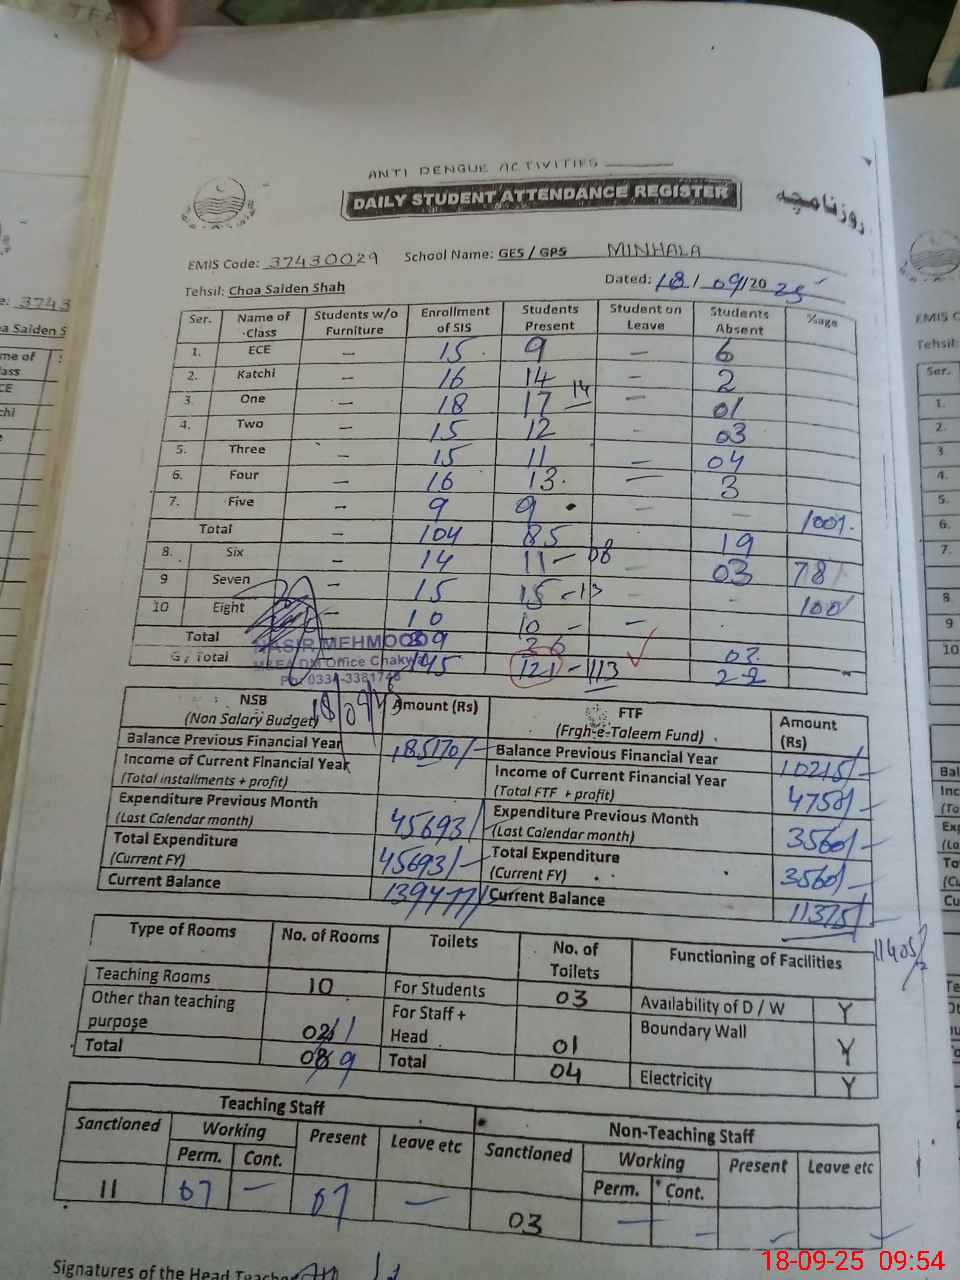 ANTI DENGUE ACTIVITIES
DAILY STUDENT ATTENDANCE REGISTER
روزنامچہ
EMIS Code: 37430029 School Name: GES / GPS MINHALA
Tehsil: Choa Saiden Shah Dated: 18 / 09/20 25
Ser. Name of Class Students w/o Furniture Enrollment of SIS Students Present Student on Leave Students Absent %age
1. ECE — 15 9 — 6
2. Katchi — 16 14 — 2
3. One — 18 17 — 14 — 01
4. Two — 15 12 03
5. Three — 15 11 — 04
6. Four — 16 13 — 3
7. Five — 9 9 — — 100%
Total — 104 85 19
8. Six — 14 11 — 08 — 03 78
9 Seven — 15 15 - 13 - 100
10 Eight 10 10 - -
Total 39 36 03
G, Total 145 121 - 113 22
NASIR MEHMOOD
M&EA DM Office Chakwal
Ph: 0334-3381748
18/09/25
NSB (Non Salary Budget) Amount (Rs) FTF (Frgh-e-Taleem Fund) Amount (Rs)
Balance Previous Financial Year 185170/- Balance Previous Financial Year 10215/-
Income of Current Financial Year (Total installments + profit) Income of Current Financial Year (Total FTF + profit) 4750/-
Expenditure Previous Month (Last Calendar month) 45693/ Expenditure Previous Month (Last Calendar month) 3560/-
Total Expenditure (Current FY) 45693/- Total Expenditure (Current FY) 3560/-
Current Balance 139477/- Current Balance 11375/-
11405/
Type of Rooms No. of Rooms Toilets No. of Toilets Functioning of Facilities
Teaching Rooms 10 For Students 03 Availability of D / W Y
Other than teaching purpose For Staff + Head 01 Boundary Wall Y
Total 9 Total 04 Electricity Y
Teaching Staff Non-Teaching Staff
Sanctioned Working Present Leave etc Sanctioned Working Present Leave etc
Perm. Cont. Perm. Cont.
11 07 — 07 — 03 — - - -
Signatures of the Head Teacher
18-09-25 09:54